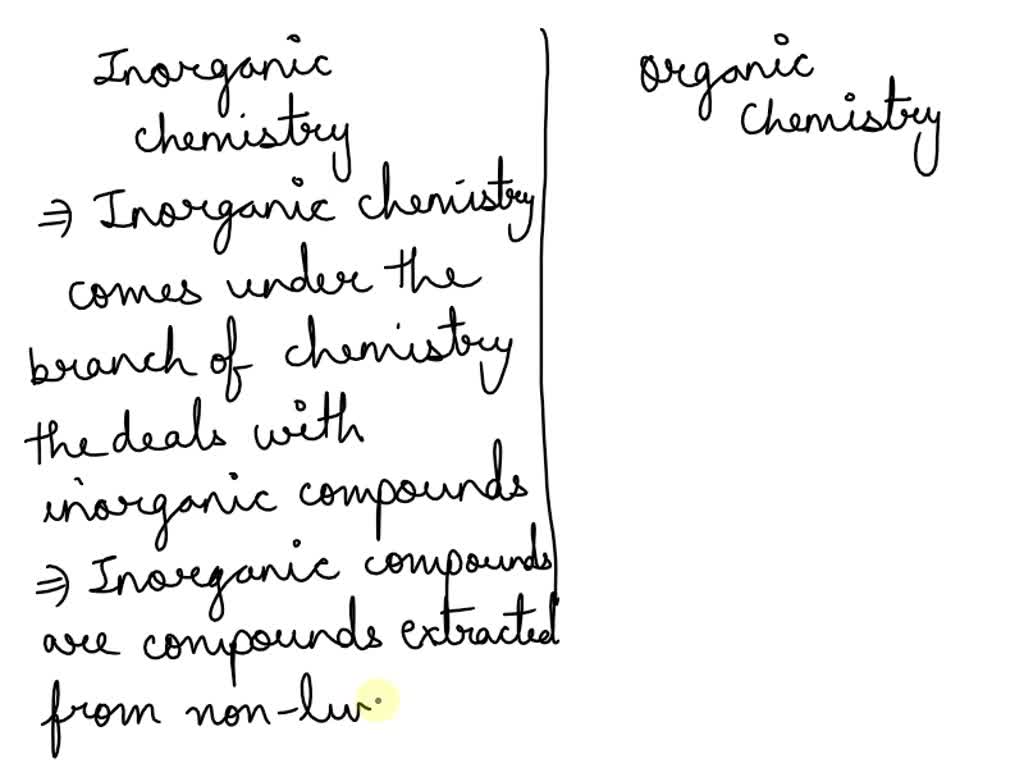 Inorganic
chemistry
⇒ Inorganic chemistry
comes under the
branch of chemistry
the deals with
inorganic compounds
⇒ Inorganic compounds
are compounds extracted
from non-liv
Organic
Chemistry